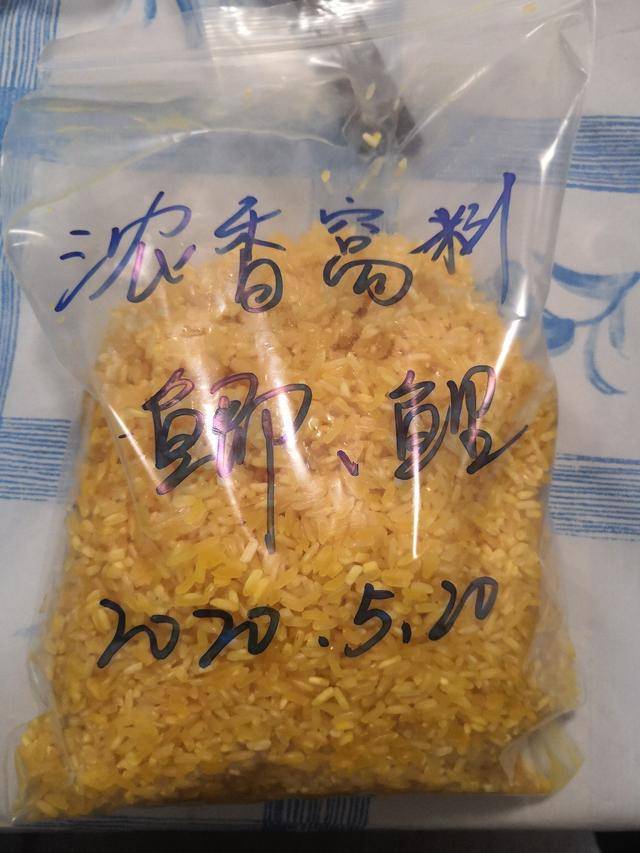 浓香窝料
鲫、鲤
2020.5.20